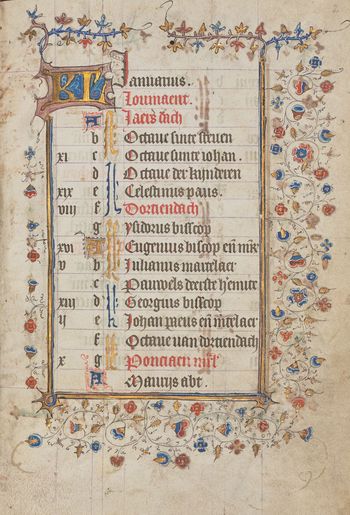 KL Januarius.
Loumaent.
A Jaers dach
b Octaue sinte steuen
xi c Octaue sinte iohan.
d Octaue der kijnderen
xix e Celestinus paus.
viij f Dortiendach
g ysidorus bisscop
xvi A Eugenius biscop en̄
v b Julianus martelaer
c Pauwels deerste
xiij d Georgius bisscop
ij e Johan en̄ mertelaer
f Octaue van dortiendach
x g Pontiaen
A abt.